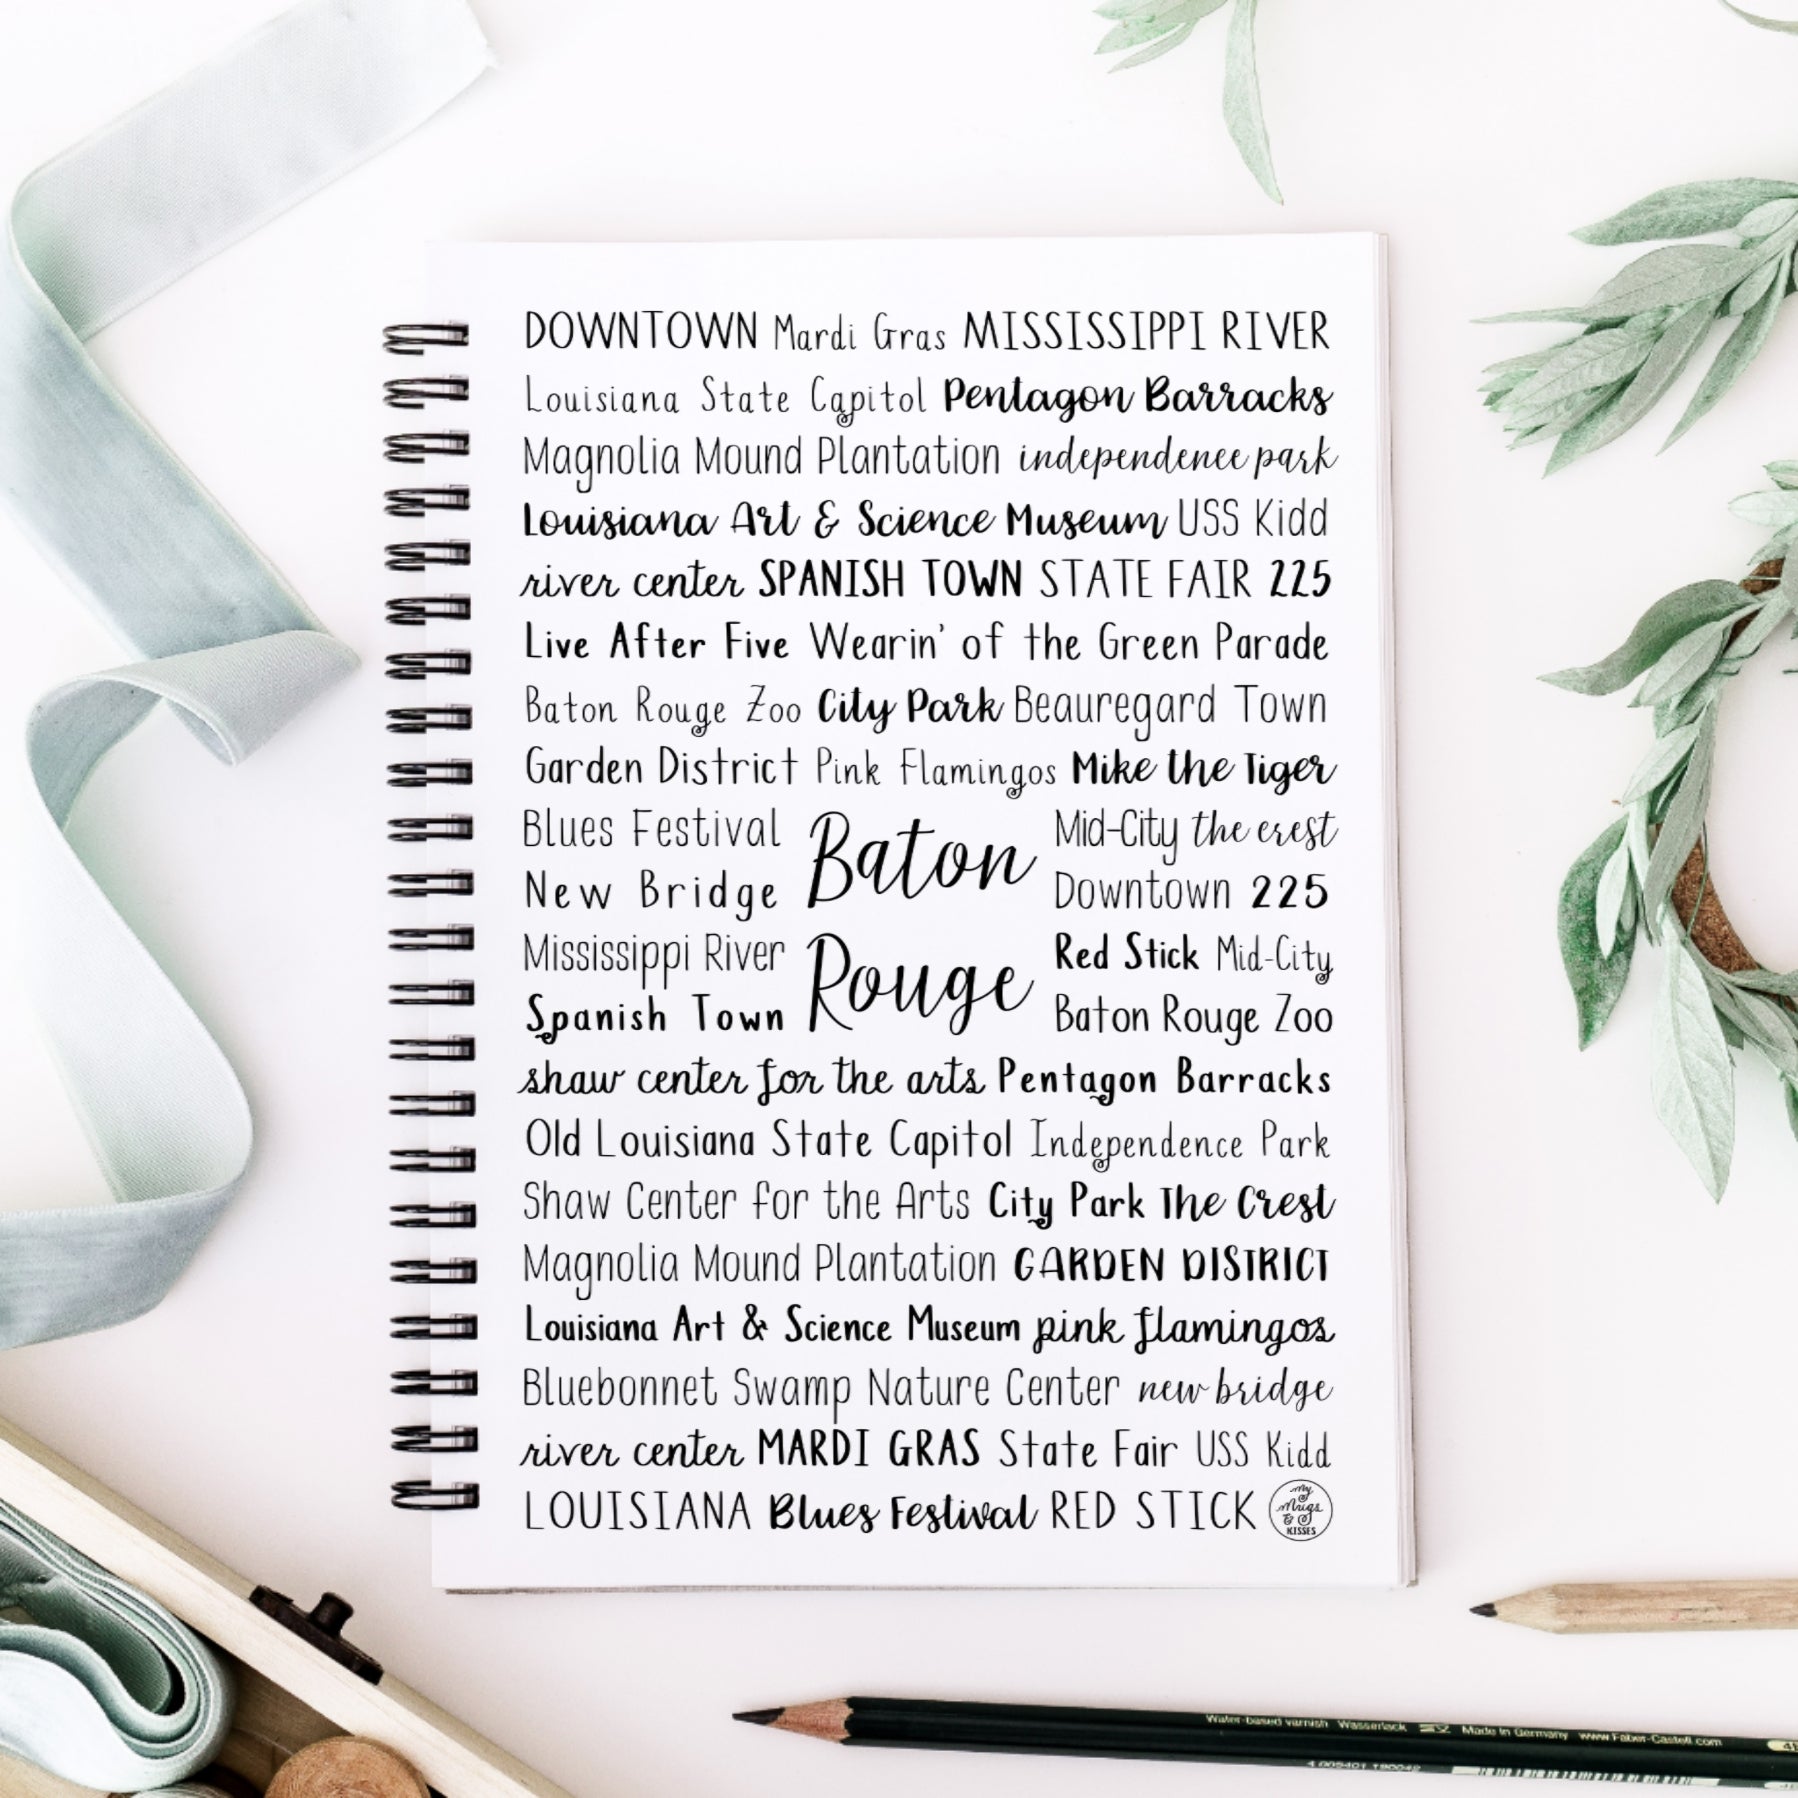 DOWNTOWN Mardi Gras MISSISSIPPI RIVER
Louisiana State Capitol Pentagon Barracks
Magnolia Mound Plantation independence park
Louisiana Art & Science Museum USS Kidd
river center SPANISH TOWN STATE FAIR 225
Live After Five Wearin' of the Green Parade
Baton Rouge Zoo City Park Beauregard Town
Garden District Pink Flamingos Mike the Tiger
Blues Festival
New Bridge
Mississippi River
Spanish Town
Baton
Rouge
Mid-City the crest
Downtown 225
Red Stick Mid-City
Baton Rouge Zoo
shaw center for the arts Pentagon Barracks
Old Louisiana State Capitol Independence Park
Shaw Center for the Arts City Park The Crest
Magnolia Mound Plantation GARDEN DISTRICT
Louisiana Art & Science Museum pink flamingos
Bluebonnet Swamp Nature Center new bridge
river center MARDI GRAS State Fair USS Kidd
LOUISIANA Blues Festival RED STICK
My
Mugs
&
KISSES
Water-based varnish Wasserlack Made in Germany www.Faber-Castell.com
4 005401 190042